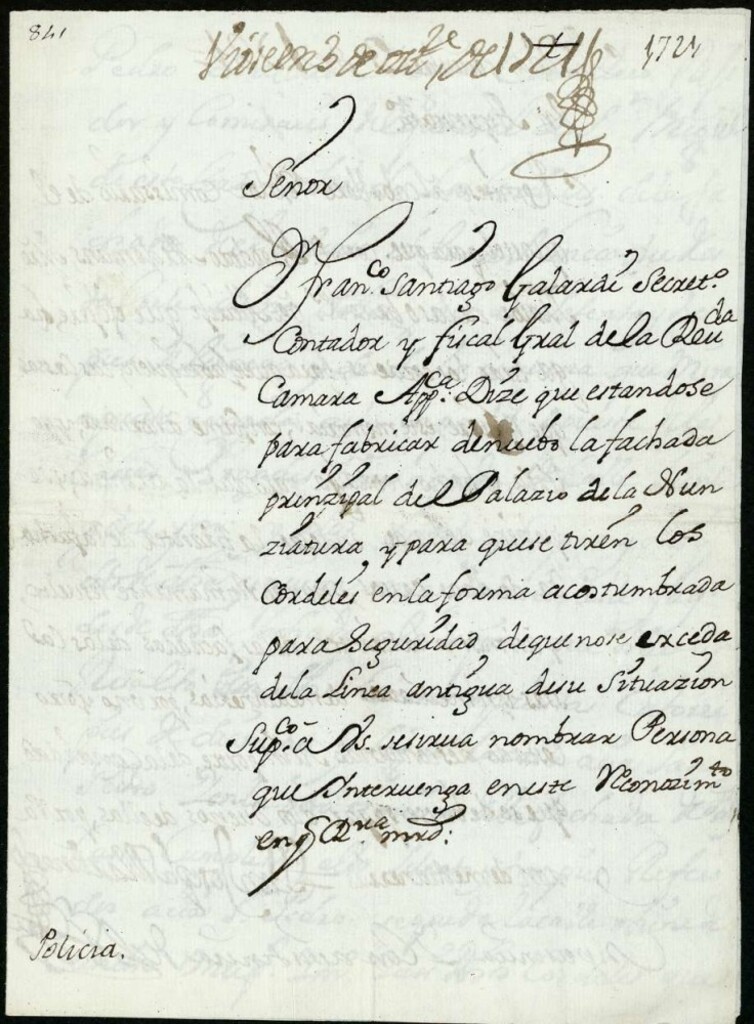 841
de 1721
1721
Señor
Dn Franco. Santiago Galarde Secreto.
Contador y fiscal Gral de la Reuda
Camara Appca: Dize que estandose
para fabricar denuebo la fachada
prinzipal del Palazio de la Nun
ziatura, y para que se tiren los
Cordeles en la forma acostumbrada
para Seguridad deque nose exceda
dela Linea antigua desu Situazion
Supco. a Vs. sesirua nombrar Persona
que Interuenga eneste Reconozimto
enq Rua. mrd:
Policia.